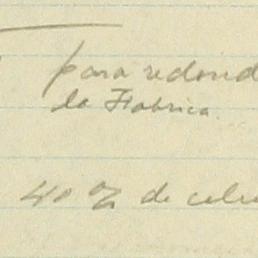 para redond
la Fabrica.
40 % de celu